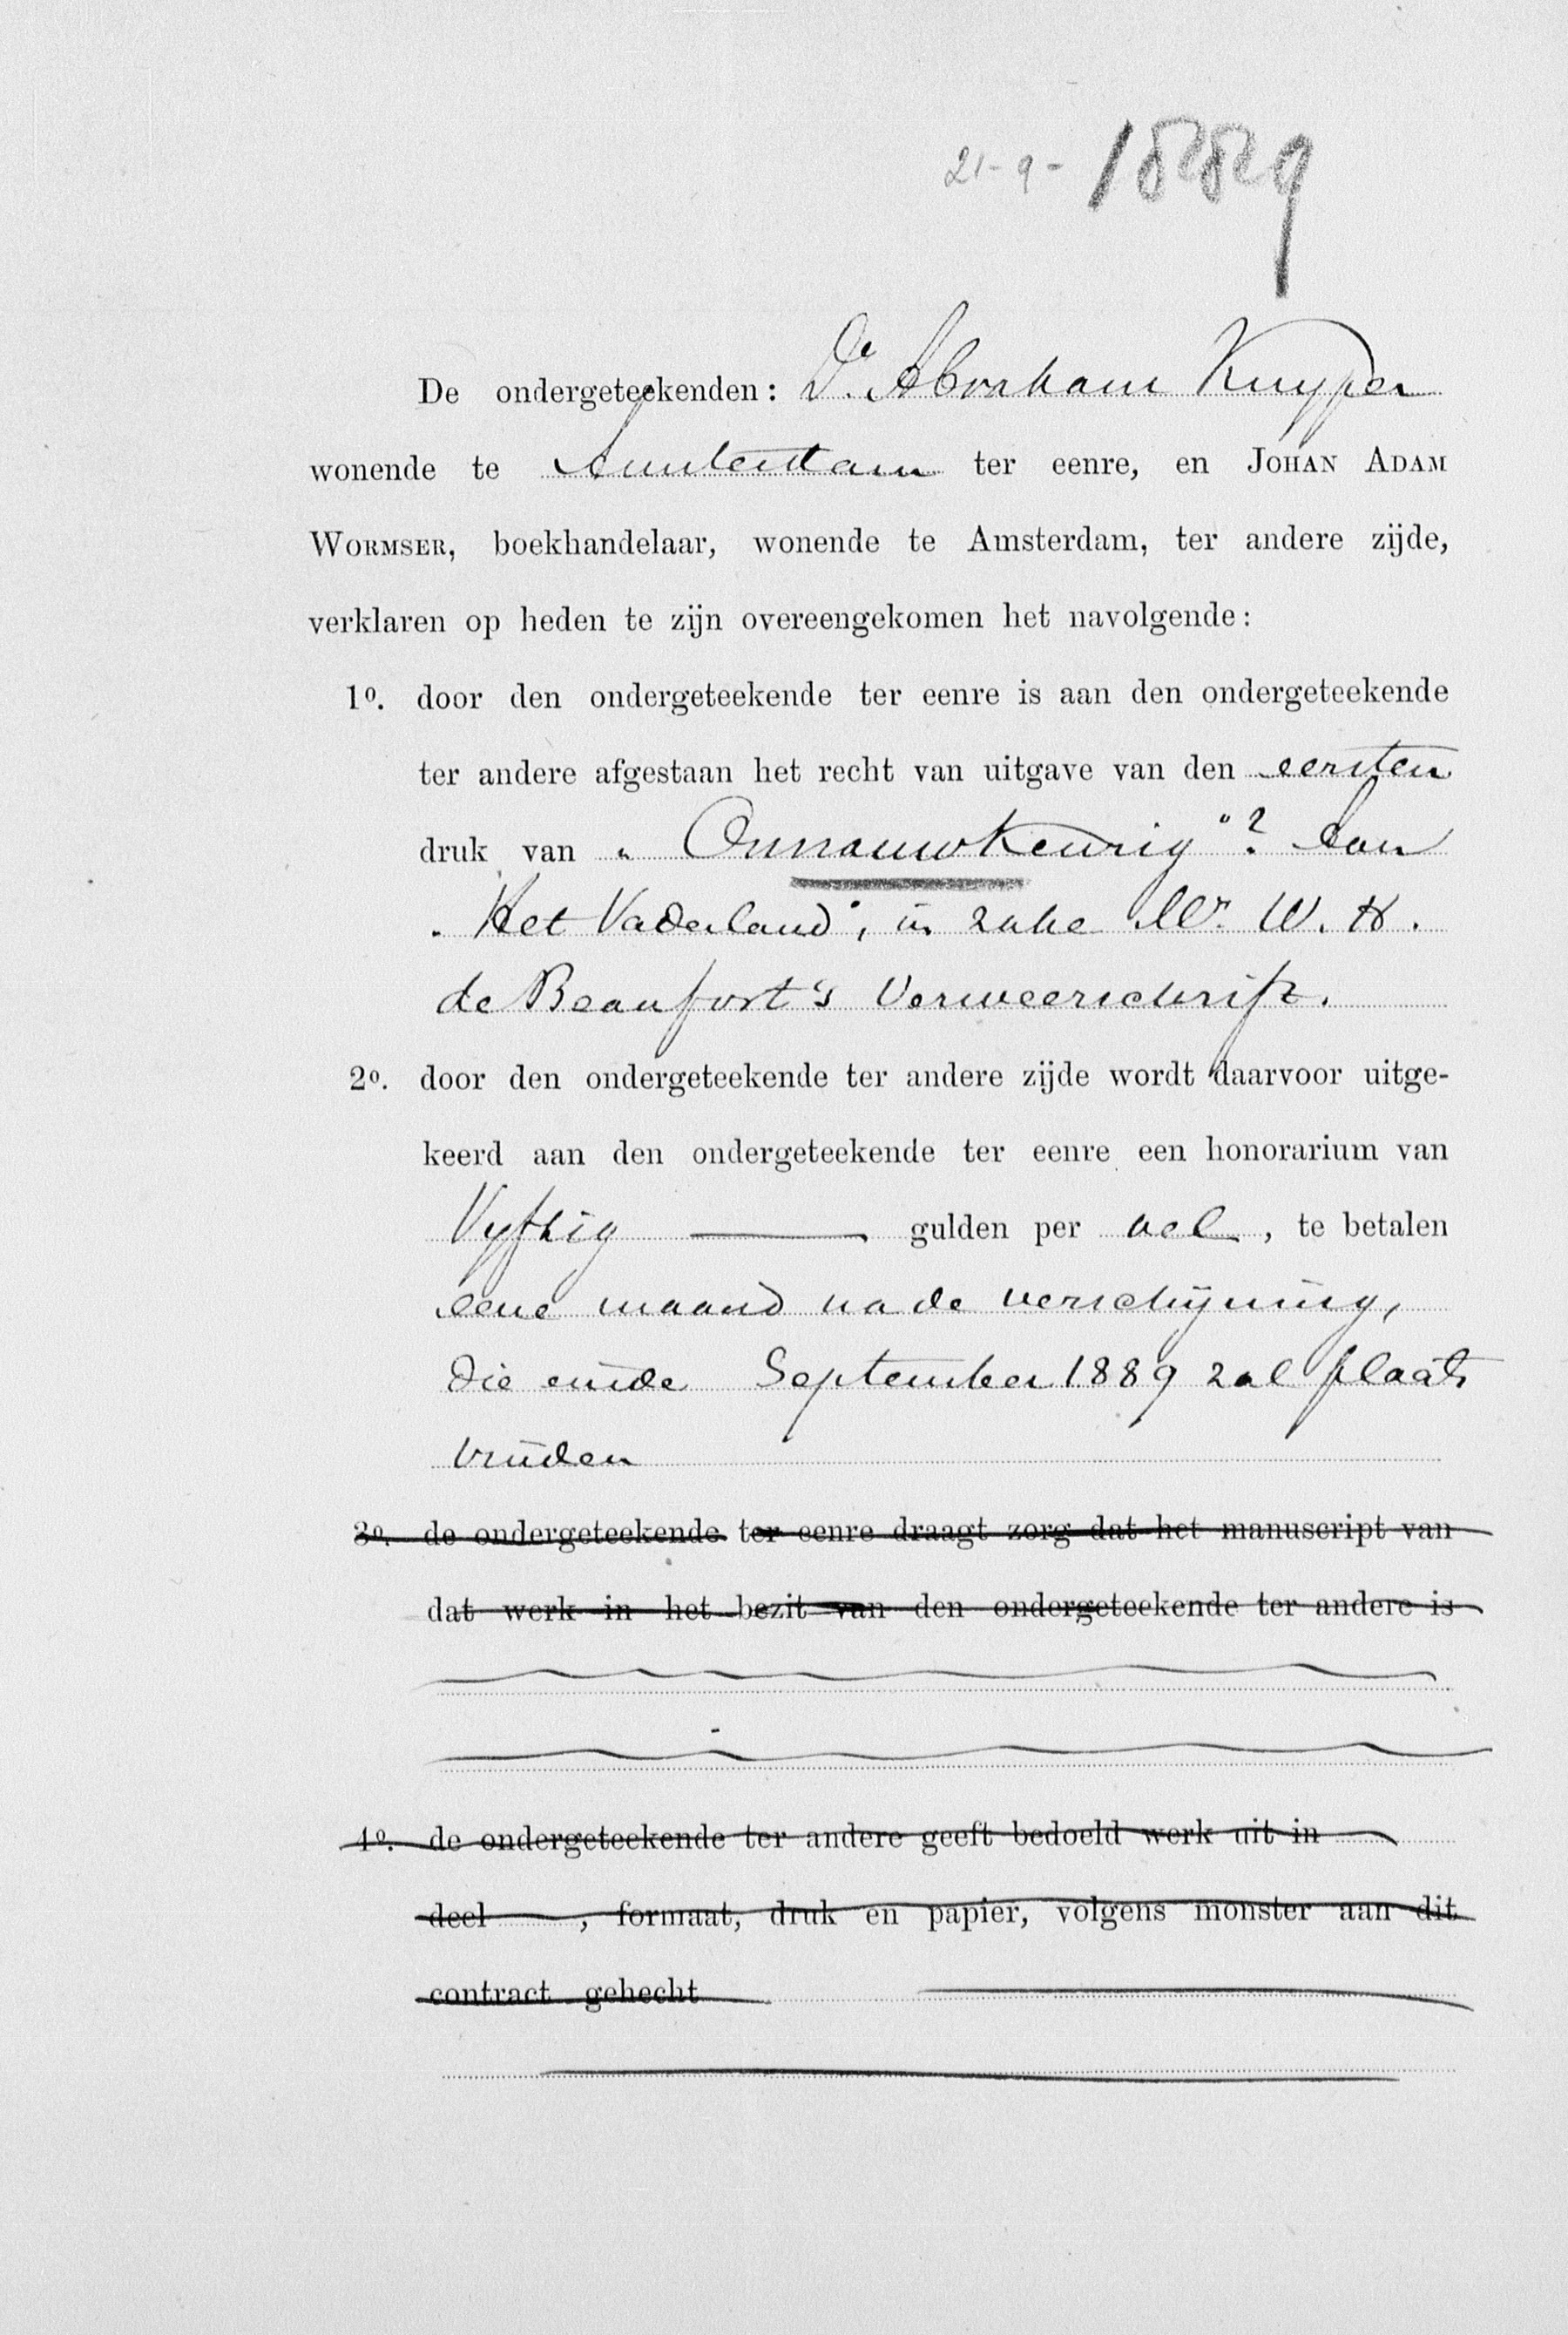 21-9-1889
De ondergeteekenden: Dr. Abraham Kuyper
wonende te Amsterdam ter eenre, en Johan Adam
Wormser, boekhandelaar, wonende te Amsterdam, ter andere zijde,
verklaren op heden te zijn overeengekomen het navolgende:
1o. door den ondergeteekende ter eenre is aan den ondergeteekende
ter andere afgestaan het recht van uitgave van den eersten
druk van „Onnauwkeurig"? Aan
„Het Vaderland", in zake Mr. W. H.
de Beaufort's Verweerschrift.
2o. door den ondergeteekende ter andere zijde wordt daarvoor uitge-
keerd aan den ondergeteekende ter eenre een honorarium van
Vyftig ——— gulden per vel, te betalen
eene maand na de verschijning,
die einde September 1889 zal plaats
vinden
3o. de ondergeteekende ter eenre draagt zorg dat het manuscript van
dat werk in het bezit van den ondergeteekende ter andere is
4o. de ondergeteekende ter andere geeft bedoeld werk uit in
deel , formaat, druk en papier, volgens monster aan dit
contract gehecht